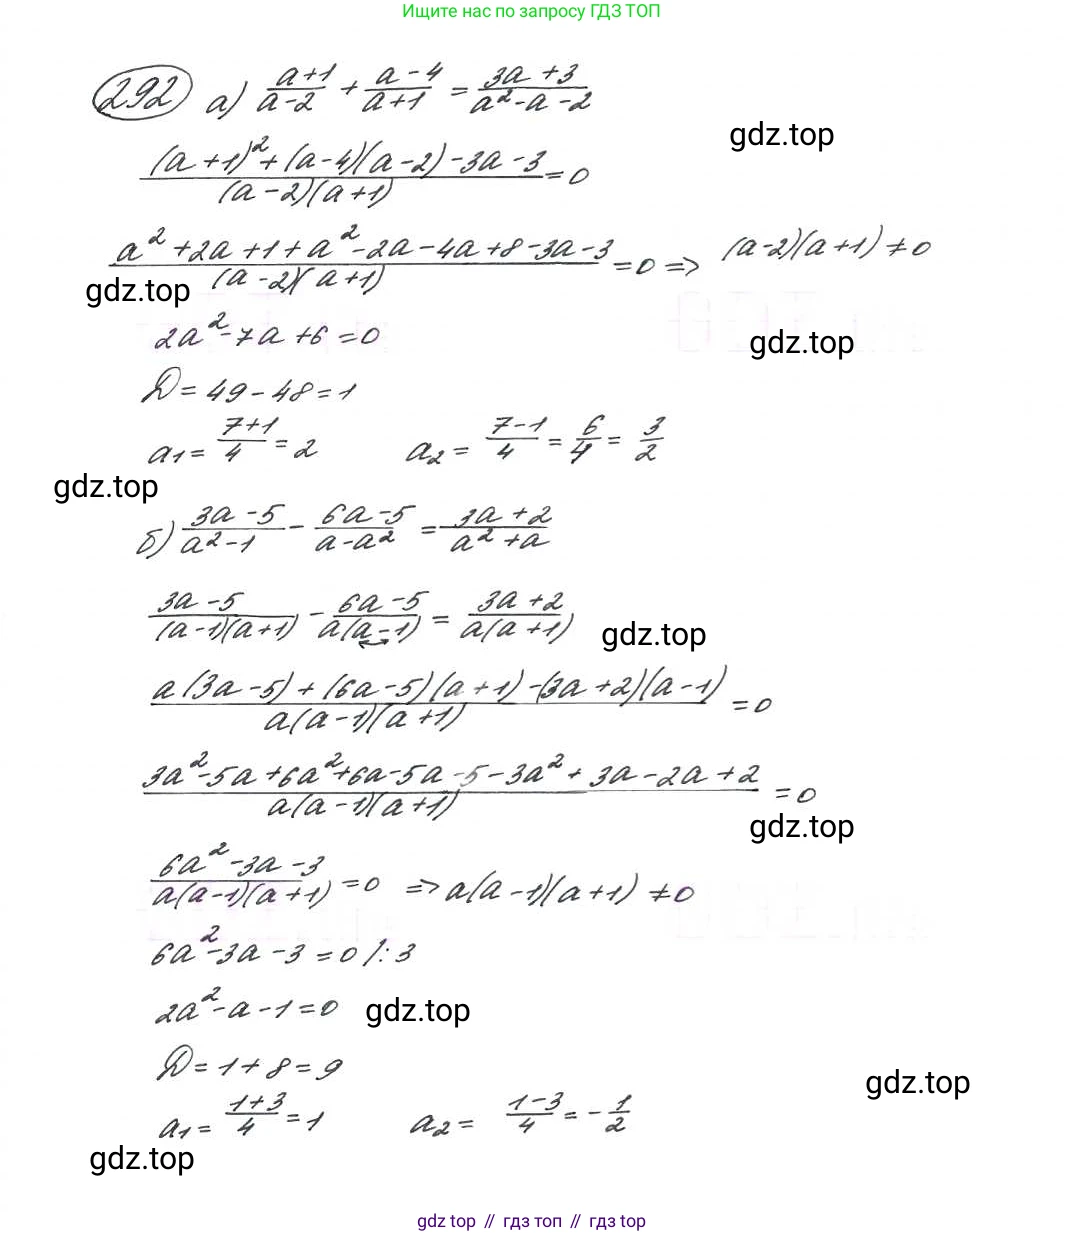 Ищите нас по запросу ГДЗ ТОП
292 а) (a+1)/(a-2) + (a-4)/(a+1) = (3a+3)/(a²-a-2)
gdz.top
((a+1)²+(a-4)(a-2)-3a-3)/((a-2)(a+1)) = 0
(a²+2a+1+a²-2a-4a+8-3a-3)/((a-2)(a+1)) = 0 => (a-2)(a+1)≠0
gdz.top
2a²-7a+6=0
gdz.top
D=49-48=1
a₁=(7+1)/4=2 a₂=(7-1)/4=6/4=3/2
gdz.top
б) (3a-5)/(a²-1) - (6a-5)/(a-a²) = (3a+2)/(a²+a)
(3a-5)/((a-1)(a+1)) - (6a-5)/(a(a-1)) = (3a+2)/(a(a+1))
gdz.top
(a(3a-5)+(6a-5)(a+1)-(3a+2)(a-1))/(a(a-1)(a+1)) = 0
(3a²-5a+6a²+6a-5a-5-3a²+3a-2a+2)/(a(a-1)(a+1)) = 0
gdz.top
(6a²-3a-3)/(a(a-1)(a+1)) = 0 => a(a-1)(a+1)≠0
6a²-3a-3=0 /:3
2a²-a-1=0
gdz.top
D=1+8=9
gdz.top
a₁=(1+3)/4=1 a₂=(1-3)/4=-1/2
gdz.top
gdz top // гдз топ // gdz top